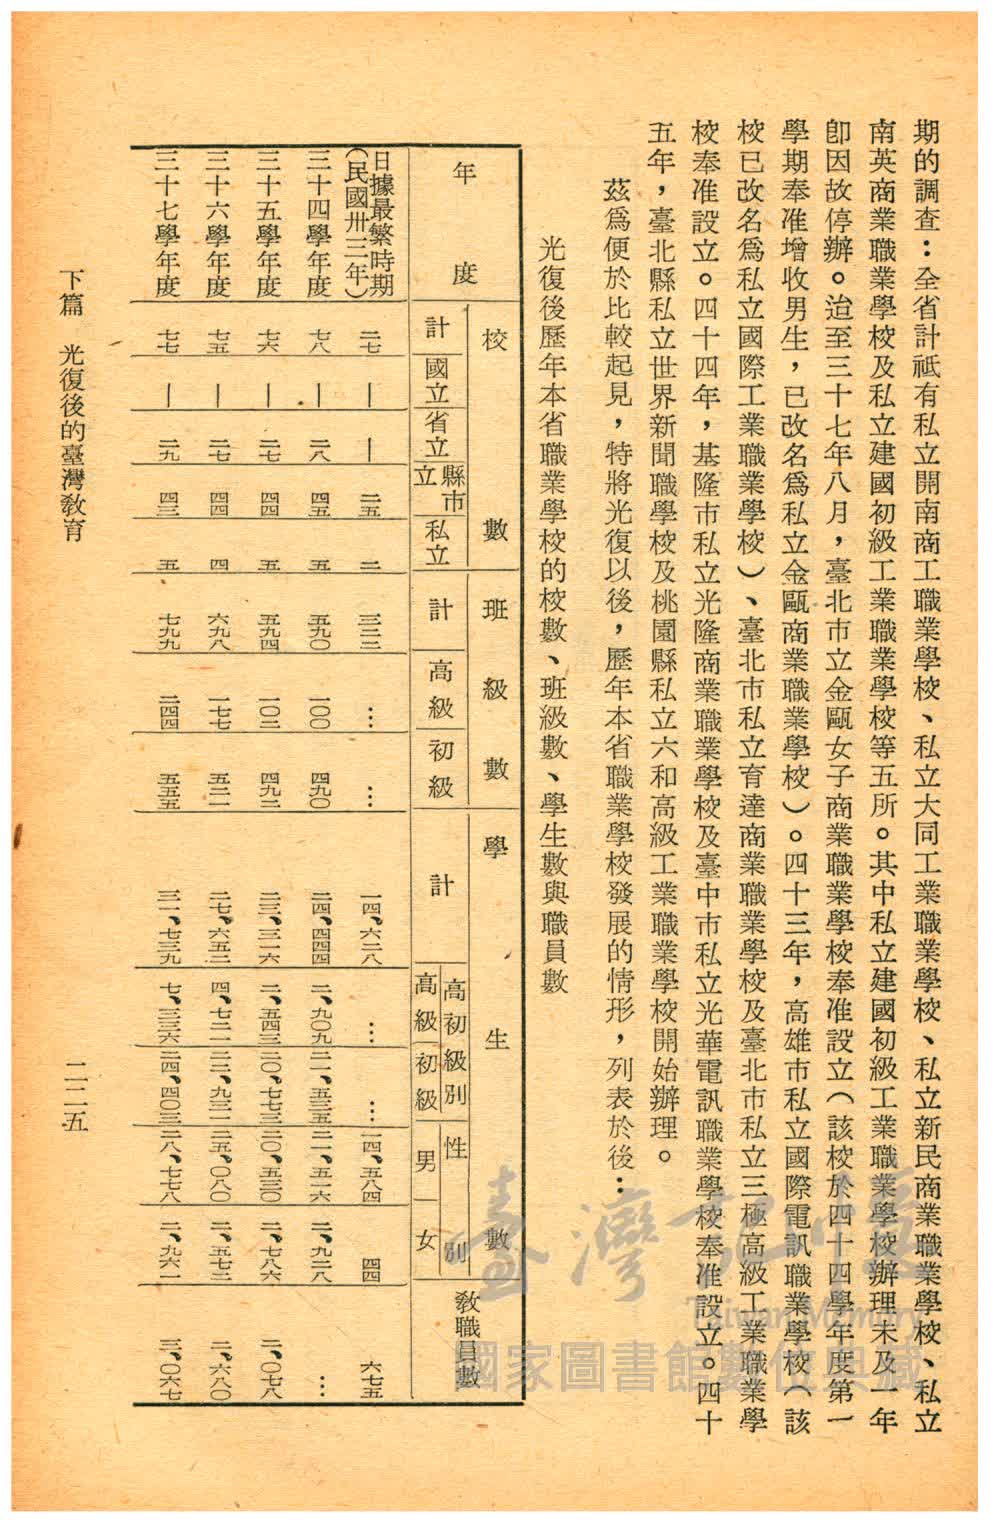 期的調查：全省計祗有私立開南商工職業學校、私立大同工業職業學校、私立新民商業職業學校、私立
南英商業職業學校及私立建國初級工業職業學校等五所。其中私立建國初級工業職業學校辦理未及一年
卽因故停辦。迨至三十七年八月，臺北市立金甌女子商業職業學校奉准設立（該校於四十四學年度第一
學期奉准增收男生，已改名爲私立金甌商業職業學校）。四十三年，高雄市私立國際電訊職業學校（該
校已改名爲私立國際工業職業學校）、臺北市私立育達商業職業學校及臺北市私立三極高級工業職業學
校奉准設立。四十四年，基隆市私立光隆商業職業學校及臺中市私立光華電訊職業學校奉准設立。四十
五年，臺北縣私立世界新聞職業學校及桃園縣私立六和高級工業職業學校開始辦理。
茲爲便於比較起見，特將光復以後，歷年本省職業學校發展的情形，列表於後：
光復後歷年本省職業學校的校數、班級數、學生數與職員數
年度 校數 班級數 學生數 教職員數
計 國立 省立 縣市立 私立 計 高級 初級 計 高初級別 高級 初級 性別 男 女
日據最繁時期（民國卅三年） 二七 — — 二五 二 三二二 … … 一四、六二八 … … 一四、五八四 四四 六七五
三十四學年度 七八 — 二八 四五 五 五九〇 一〇〇 四九〇 二四、四四四 二、九〇九 二一、五三五 二一、五一六 二、九二八 …
三十五學年度 七六 — 二七 四四 五 五九四 一〇二 四九二 二三、三一六 二、五四三 二〇、七七三 二〇、五三〇 二、七八六 二、〇七八
三十六學年度 七五 — 二七 四四 四 六九八 一七七 五二一 二七、六五二 四、七二一 二二、九三一 二五、〇八〇 二、五七二 二、六八〇
三十七學年度 七七 — 二九 四三 五 七九九 二四四 五五五 三一、七三九 七、三三六 二四、四〇三 二八、七七八 二、九六一 三、〇六七
下篇　光復後的臺灣教育
二二五
臺灣記憶
Taiwan Memory
國家圖書館數位典藏